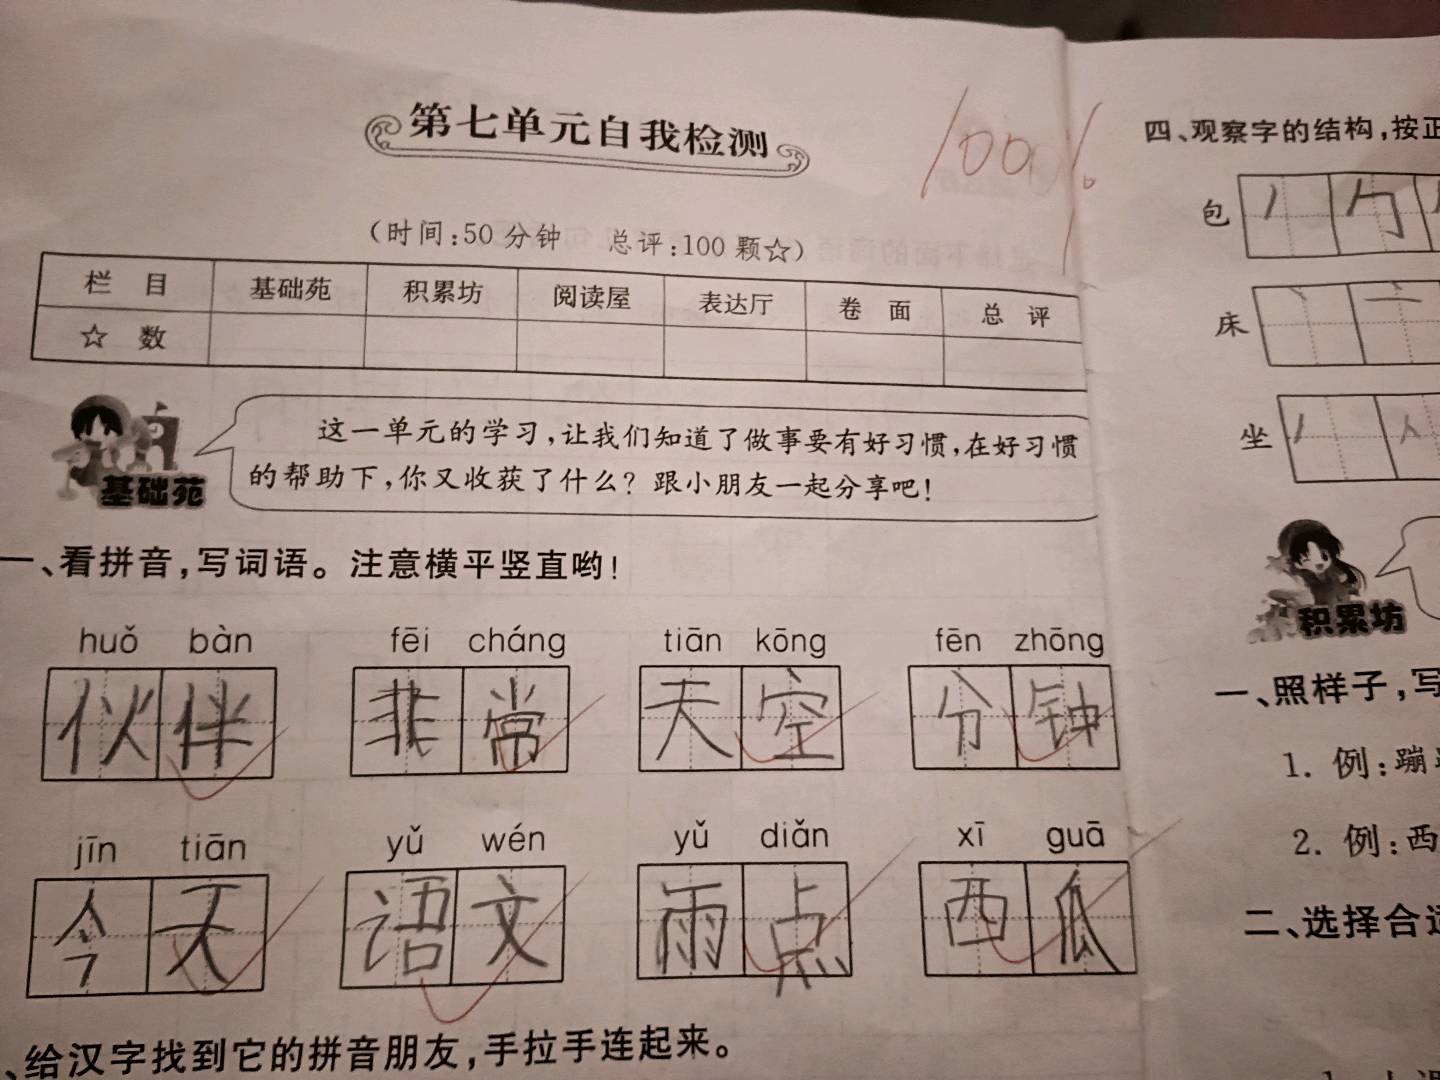 第七单元自我检测
100%
（时间:50分钟 总评:100颗☆）
栏 目 基础苑 积累坊 阅读屋 表达厅 卷 面 总 评
☆ 数
这一单元的学习,让我们知道了做事要有好习惯,在好习惯
的帮助下,你又收获了什么？跟小朋友一起分享吧！
基础苑
一、看拼音,写词语。注意横平竖直哟！
huǒ bàn fēi cháng tiān kōng fēn zhōng
伙伴 非常 天空 分钟
jīn tiān yǔ wén yǔ diǎn xī guā
今天 语文 雨点 西瓜
、给汉字找到它的拼音朋友,手拉手连起来。
四、观察字的结构,按正
包
床
坐
积累坊
一、照样子,写
1. 例:蹦
2. 例:西
二、选择合适